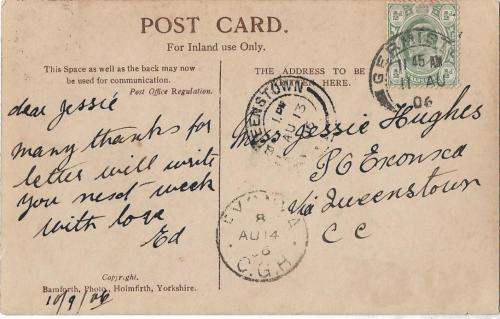 POST CARD.
For Inland use Only.
This Space as well as the back may now
be used for communication.
Post Office Regulation.
THE ADDRESS TO BE
HERE.
dear Jessie
many thanks for
letter will write
you next week
with love
Ed
Miss Jessie Hughes
PO Exonxa
Via Queenstown
C C
GERMISTON
11 45 AM
11 AU
06
QUEENSTOWN
AU 13
8
AU 14
06
C.G.H
Copyright.
Bamforth, Photo, Holmfirth, Yorkshire.
10/9/06